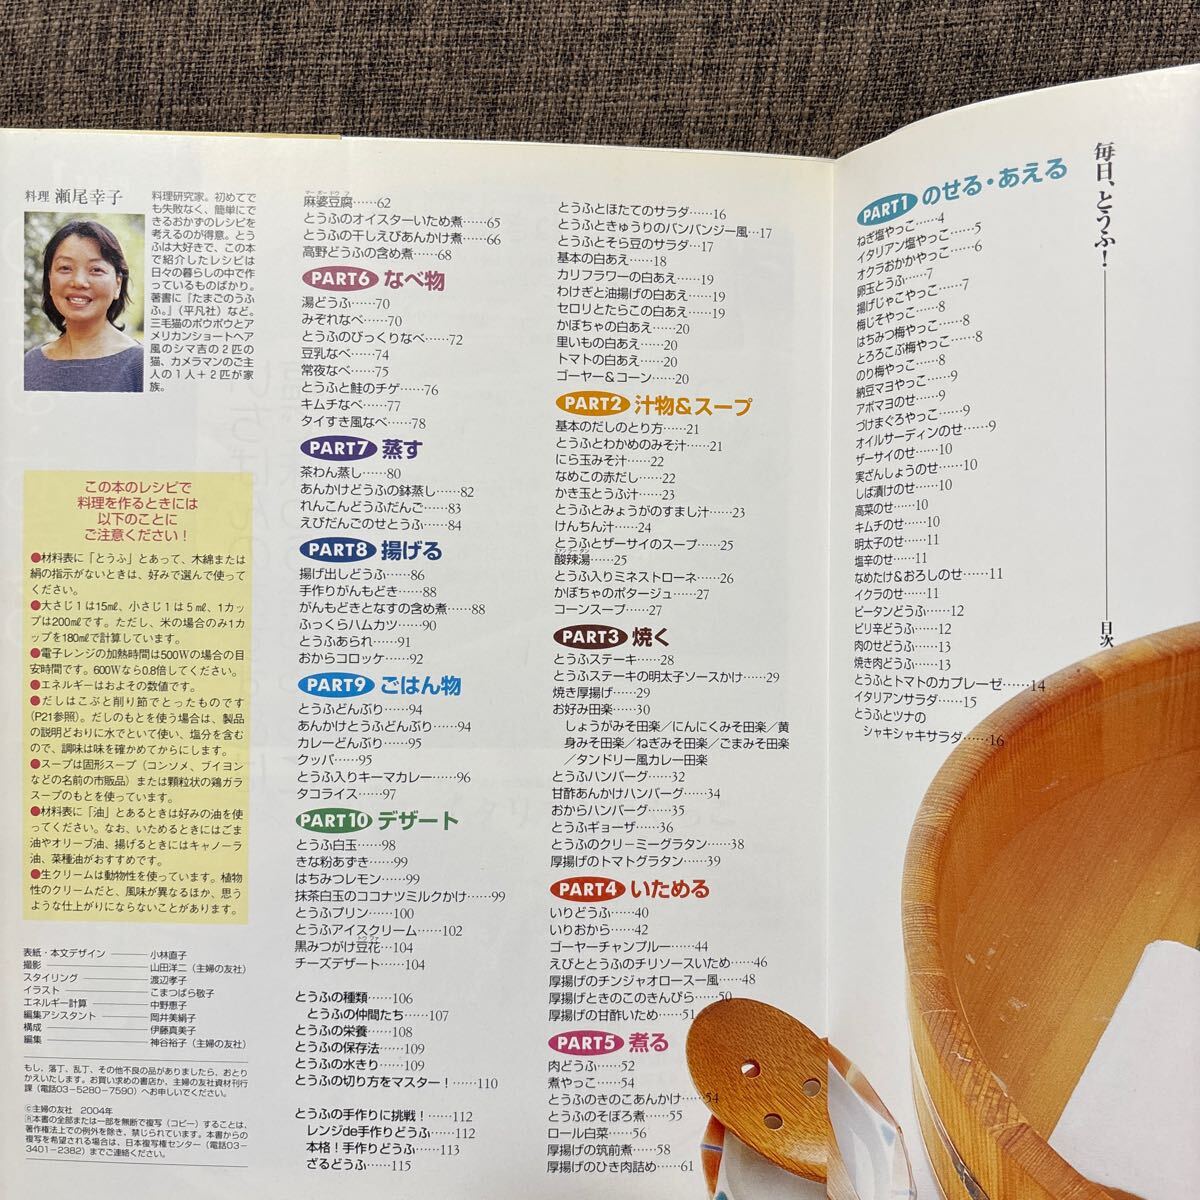 毎日、とうふ！
目次
PART1 のせる・あえる
ねぎ塩やっこ……4
イタリアン塩やっこ……5
オクラおかかやっこ……6
卵玉とうふ……7
揚げじゃこやっこ……7
梅じそやっこ……8
はちみつ梅やっこ……8
とろろこぶ梅やっこ……8
のり梅やっこ……8
納豆マヨやっこ……9
アボマヨのせ……9
づけまぐろやっこ……9
オイルサーディンのせ……9
ザーサイのせ……10
実ざんしょうのせ……10
しば漬けのせ……10
高菜のせ……10
キムチのせ……10
明太子のせ……11
塩辛のせ……11
なめたけ&おろしのせ……11
イクラのせ……11
ピータンどうふ……12
ピリ辛どうふ……12
肉のせどうふ……13
焼き肉どうふ……13
とうふとトマトのカプレーゼ……14
イタリアンサラダ……15
とうふとツナの
シャキシャキサラダ……16
とうふとほたてのサラダ……16
とうふときゅうりのバンバンジー風……17
とうふとそら豆のサラダ……17
基本の白あえ……18
カリフラワーの白あえ……19
わけぎと油揚げの白あえ……19
セロリとたらこの白あえ……19
かぼちゃの白あえ……20
里いもの白あえ……20
トマトの白あえ……20
ゴーヤー&コーン……20
PART2 汁物&スープ
基本のだしのとり方……21
とうふとわかめのみそ汁……21
にら玉みそ汁……22
なめこの赤だし……22
かき玉とうふ汁……23
とうふとみょうがのすまし汁……23
けんちん汁……24
とうふとザーサイのスープ……25
酸辣湯……25
とうふ入りミネストローネ……26
かぼちゃのポタージュ……27
コーンスープ……27
PART3 焼く
とうふステーキ……28
とうふステーキの明太子ソースかけ……29
焼き厚揚げ……29
お好み田楽……30
しょうがみそ田楽／にんにくみそ田楽／黄
身みそ田楽／ねぎみそ田楽／ごまみそ田楽
／タンドリー風カレー田楽
とうふハンバーグ……32
甘酢あんかけハンバーグ……34
おからハンバーグ……35
とうふギョーザ……36
とうふのクリーミーグラタン……38
厚揚げのトマトグラタン……39
PART4 いためる
いりどうふ……40
いりおから……42
ゴーヤーチャンプルー……44
えびととうふのチリソースいため……46
厚揚げのチンジャオロースー風……48
厚揚げときのこのきんぴら……50
厚揚げの甘酢いため……51
PART5 煮る
肉どうふ……52
煮やっこ……54
とうふのきのこあんかけ……54
とうふのそぼろ煮……55
ロール白菜……56
厚揚げの筑前煮……58
厚揚げのひき肉詰め……61
マーボードウフ
麻婆豆腐……62
とうふのオイスターいため煮……65
とうふの干しえびあんかけ煮……66
高野どうふの含め煮……68
PART6 なべ物
湯どうふ……70
みぞれなべ……70
とうふのびっくりなべ……72
豆乳なべ……74
常夜なべ……75
とうふと鮭のチゲ……76
キムチなべ……77
タイすき風なべ……78
PART7 蒸す
茶わん蒸し……80
あんかけどうふの鉢蒸し……82
れんこんどうふだんご……83
えびだんごのせとうふ……84
PART8 揚げる
揚げ出しどうふ……86
手作りがんもどき……88
がんもどきとなすの含め煮……88
ふっくらハムカツ……90
とうふあられ……91
おからコロッケ……92
PART9 ごはん物
とうふどんぶり……94
あんかけとうふどんぶり……94
カレーどんぶり……95
クッパ……95
とうふ入りキーマカレー……96
タコライス……97
PART10 デザート
とうふ白玉……98
きな粉あずき……99
はちみつレモン……99
抹茶白玉のココナツミルクかけ……99
とうふプリン……100
とうふアイスクリーム……102
黒みつがけ豆花……104
チーズデザート……104
とうふの種類……106
とうふの仲間たち……107
とうふの栄養……108
とうふの保存法……109
とうふの水きり……109
とうふの切り方をマスター！……110
とうふの手作りに挑戦！……112
レンジde手作りどうふ……112
本格！手作りどうふ……113
ざるどうふ……115
料理 瀬尾幸子
料理研究家。初めてで
も失敗なく、簡単にで
きるおかずのレシピを
考えるのが得意。とう
ふは大好きで、この本
で紹介したレシピは
日々の暮らしの中で作
っているものばかり。
著書に『たまごのうふ
ふ。』(平凡社)など。
三毛猫のポウポウとア
メリカンショートヘア
風のシマ吉の2匹の
猫、カメラマンのご主
人の1人+2匹が家
族。
この本のレシピで
料理を作るときには
以下のことに
ご注意ください！
●材料表に「とうふ」とあって、木綿または
絹の指示がないときは、好みで選んで使って
ください。
●大さじ1は15㎖、小さじ1は5㎖、1カッ
プは200㎖です。ただし、米の場合のみ1カ
ップを180㎖で計算しています。
●電子レンジの加熱時間は500Wの場合の目
安時間です。600Wなら0.8倍してください。
●エネルギーはおよその数値です。
●だしはこぶと削り節でとったものです
(P21参照)。だしのもとを使う場合は、製品
の説明どおりに水でといて使い、塩分を含む
ので、調味は味を確かめてからにします。
●スープは固形スープ(コンソメ、ブイヨン
などの名前の市販品)または顆粒状の鶏ガラ
スープのもとを使っています。
●材料表に「油」とあるときは好みの油を使
ってください。なお、いためるときにはごま
油やオリーブ油、揚げるときにはキャノーラ
油、菜種油がおすすめです。
●生クリームは動物性を使っています。植物
性のクリームだと、風味が異なるほか、思う
ような仕上がりにならないことがあります。
表紙・本文デザイン――小林直子
撮影――山田洋二(主婦の友社)
スタイリング――渡辺孝子
イラスト――こまつばら敬子
エネルギー計算――中野恵子
編集アシスタント――岡井美絹子
構成――伊藤真美子
編集――神谷裕子(主婦の友社)
もし、落丁、乱丁、その他不良の品がありましたら、おとり
かえいたします。お買い求めの書店か、主婦の友社資材刊行
課(電話03-5280-7590)へお申しいでください。
©主婦の友社 2004年
Ⓡ本書の全部または一部を無断で複写(コピー)することは、
著作権法上での例外を除き、禁じられています。本書からの
複写を希望される場合は、日本複写権センター(電話03-
3401-2382)までご連絡ください。